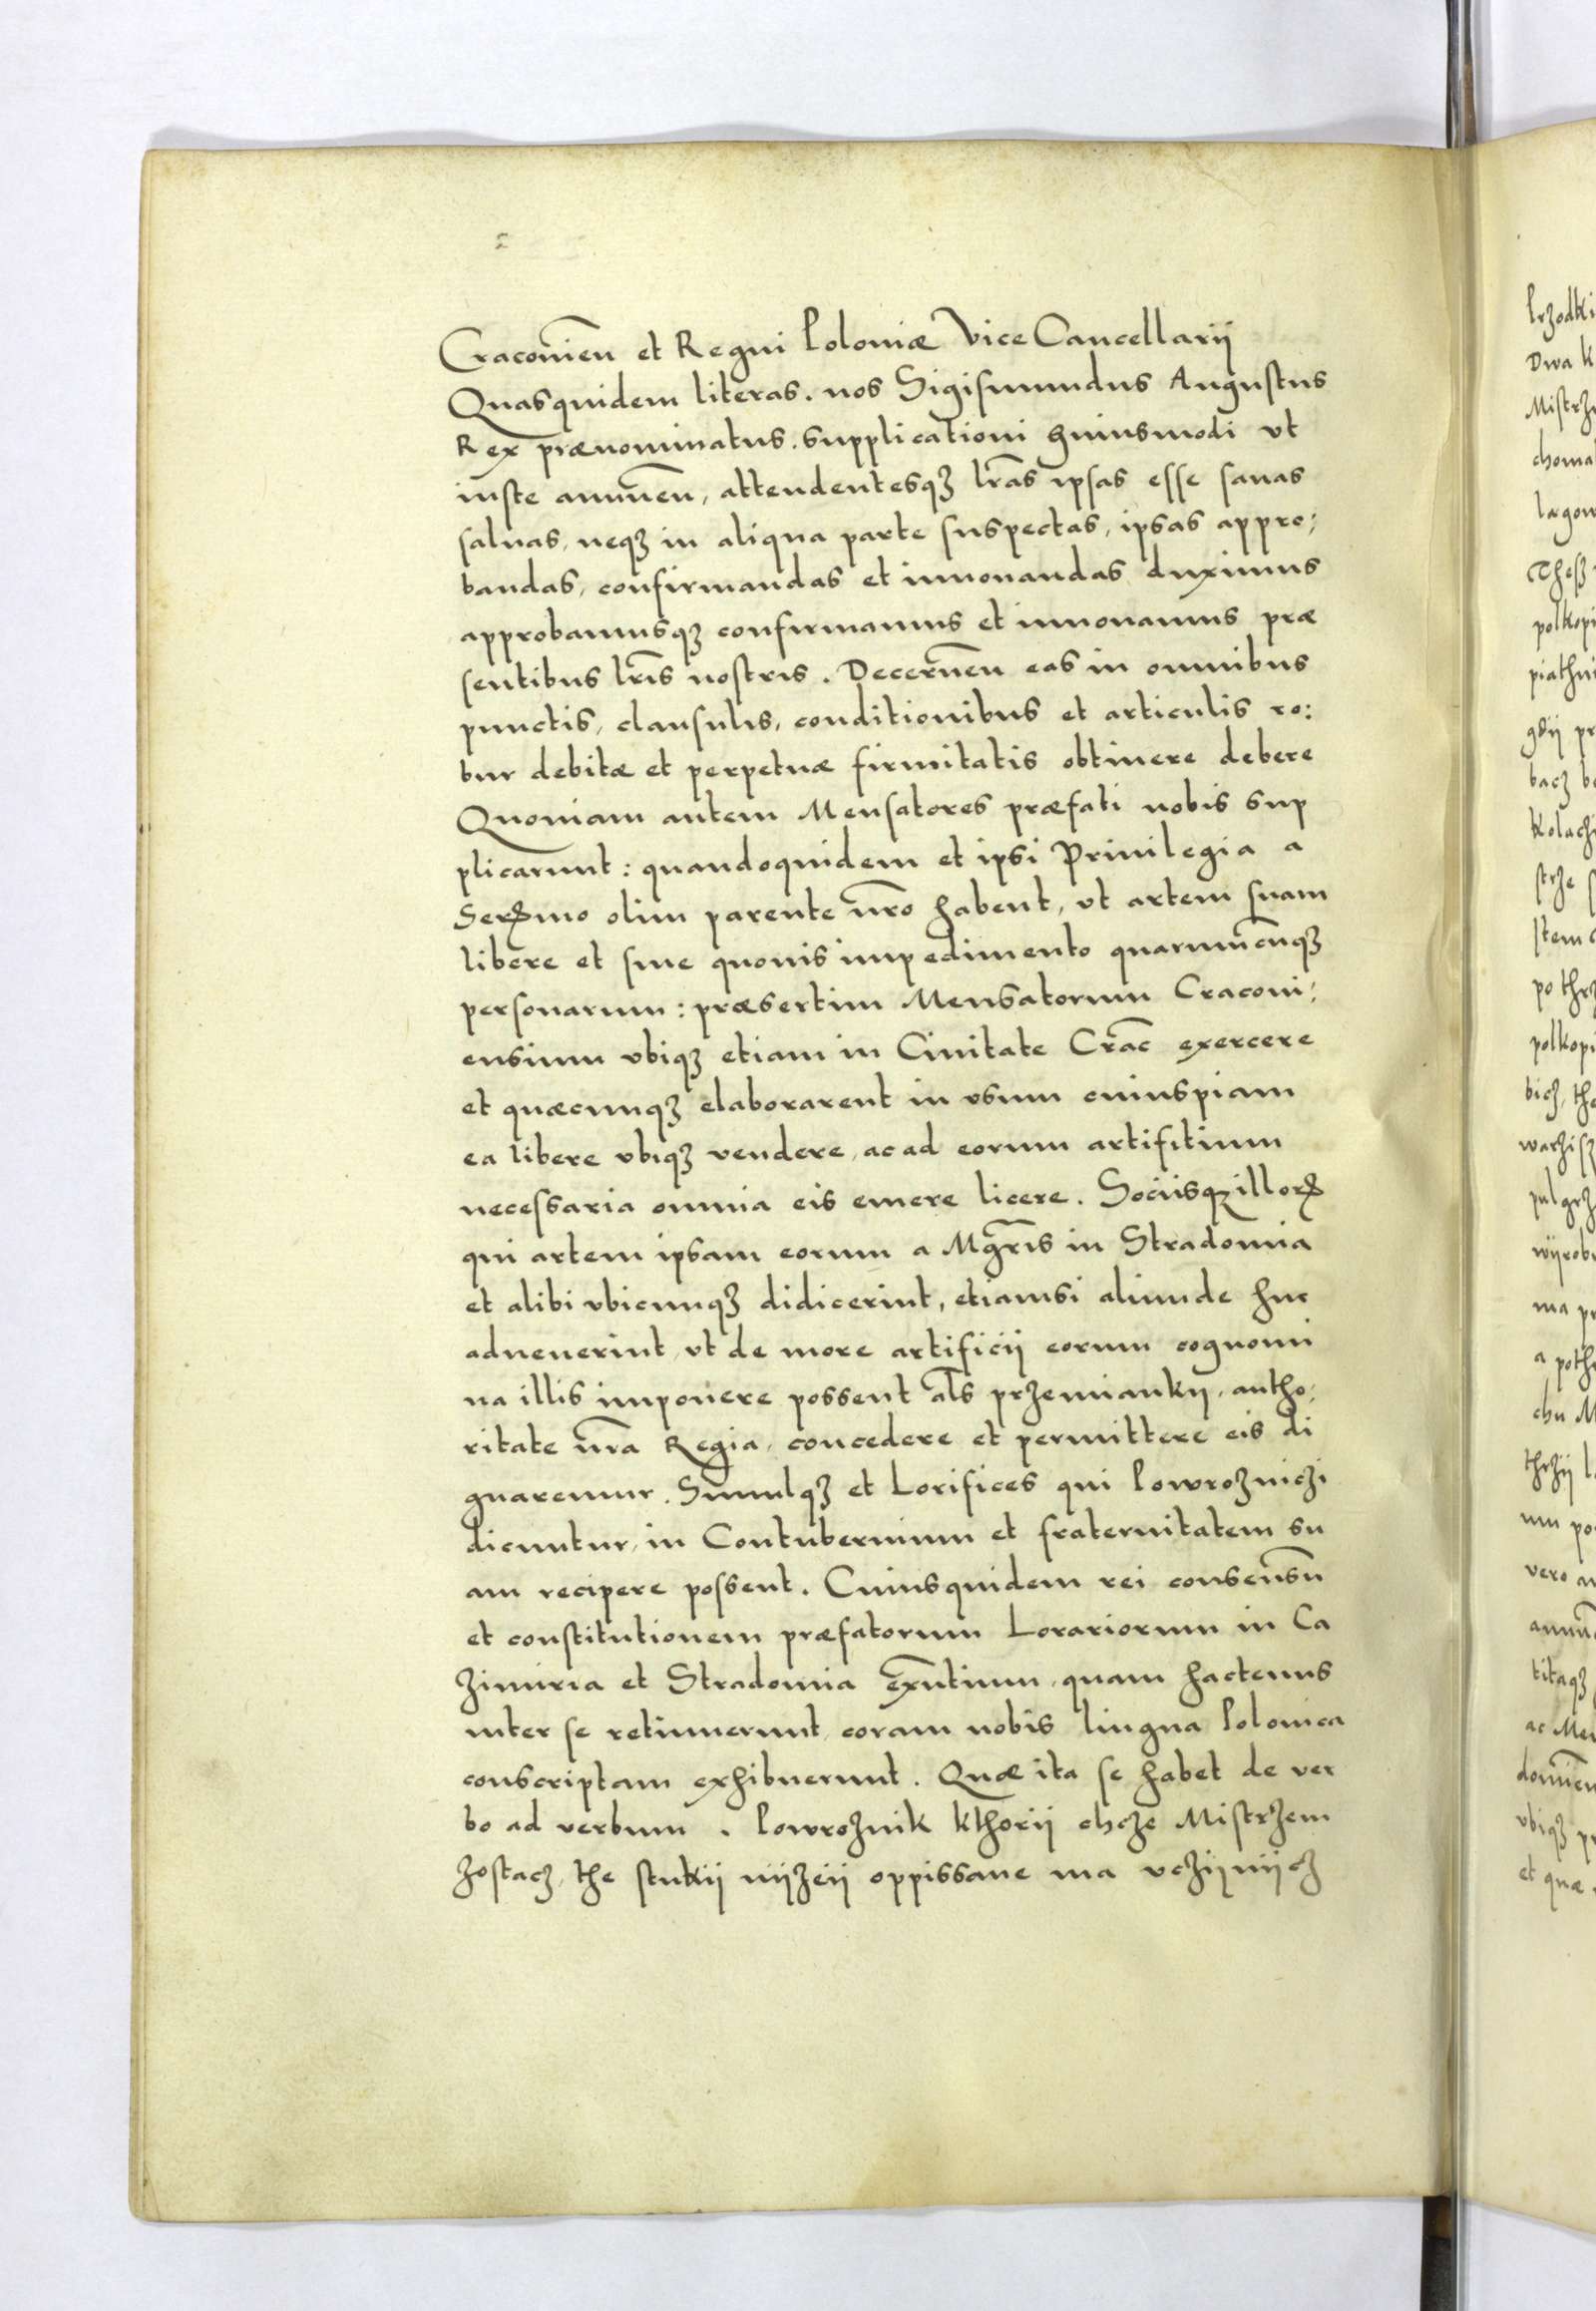 Cracovień et Regni Poloniæ Vice Cancellarij
Quasquidem literas. nos Sigismundus Augustus
Rex prænominatus. supplicationi huiusmodi vt
iuste annueń, attendentesqꝫ lr̃as ipsas esse sanas
saluas, neqꝫ in aliqua parte suspectas, ipsas appro:
bandas, confirmandas et innouandas duximus
approbamusqꝫ confirmamus et innouamus præ
sentibus lr̃is nostris. Decerneń eas in omnibus
punctis, clausulis, conditionibus et articulis ro:
bur debitæ et perpetuæ firmitatis obtinere debere
Quoniam autem Mensatores præfati nobis sup
plicarunt: quandoquidem et ipsi Priuilegia a
Serꝫmo olim parente nr̃o habent, vt artem suam
libere et sine quouis impedimento quarumcũqꝫ
personarum: præsertim Mensatorum Cracoui:
ensium vbiqꝫ etiam in Ciuitate Crac̃ exercere
et quæcunqꝫ elaborarent in vsum cuiuspiam
ea libere vbiqꝫ vendere, ac ad eorum artifitium
necessaria omnia eis emere licere. Sociisqꝫ illorꝫ
qui artem ipsam eorum a Mgr̃is in Stradomia
et alibi vbicunqꝫ didicerint, etiamsi aliunde huc
aduenerint, vt de more artificij eorum cognomi
na illis imponere possent al̃s przemiankij, autho:
ritate nr̃a Regia, concedere et permittere eis di
gnaremur. Simulqꝫ et Lorifices qui Powrozniczi
dicuntur, in Contubernium et fraternitatem su
am recipere possent. Cuiusquidem rei consensũ
et constitutionem præfatorum Lorariorum in Ca
zimiria et Stradomia exñtium, quam hactenus
inter se retinuerunt, coram nobis lingua Polonica
conscriptam exhibuerunt. Quæ ita se habet de ver
bo ad verbum. Powroznik kthorij chcze Mistrzem
zostacz, the stukij nijzeij oppissane ma vczijnijcz
Przodki
Dwa k